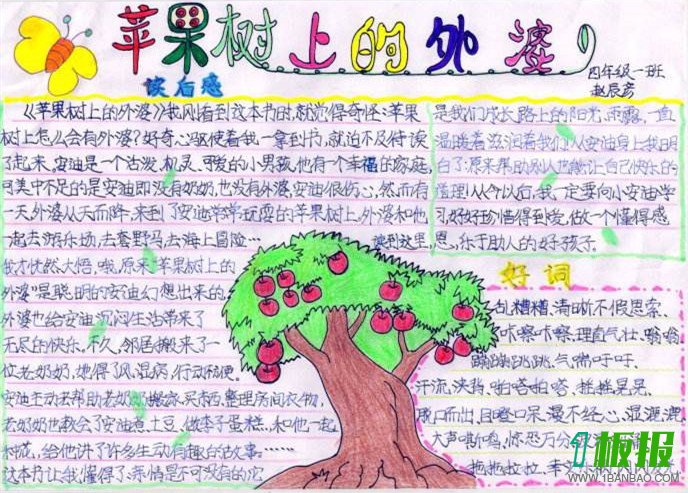 苹果树上的外婆
四年级一班
读后感
《苹果树上的外婆》我刚看到这本书时,就觉得奇怪:苹果
树上怎么会有外婆?好奇心驱使着我一拿到书,就迫不及待读
了起来。安迪是一个活泼、机灵、可爱的小男孩,他有一个幸福的家庭,
可美中不足的是安迪即没有奶奶,也没有外婆,安迪很伤心,然而有
一天外婆从天而降,来到了安迪常常玩耍的苹果树上,外婆和他
一起去游乐场,去套野马,去海上冒险……读到这里,
我才恍然大悟,哦,原来“苹果树上的
外婆”是聪明的安迪幻想出来的,
外婆也给安迪沉闷生活带来了
无尽的快乐。不久,邻居搬来了一
位老奶奶,她得了风湿病,行动不便。
安迪主动去帮助老奶奶搬家、买东西、整理房间衣物,
老奶奶也教会了安迪煮土豆、做李子蛋糕,和他一起
给他讲了许多生动有趣的故事……
这本书让我懂得了:亲情是不可没有的,它
是我们成长路上的阳光、雨露,一直
温暖着滋润着我们,从安迪身上我明
白了:原来帮助别人也能让自己快乐的
道理!从今以后,我一定要向小安迪学
习,好好珍惜得到爱,做一个懂得感
恩,乐于助人的好孩子。
好词
乱糟糟、清晰、不假思索、
咔嚓咔嚓、理直气壮、嗡嗡
蹦蹦跳跳、气喘吁吁、
汗流浃背、啪嗒啪嗒、摇摇晃晃、
脱口而出、目瞪口呆、漫不经心、湿漉漉
大声嘶鸣、惊恐万分
拖拖拉拉、
1板报
WWW.1BANBAO.COM